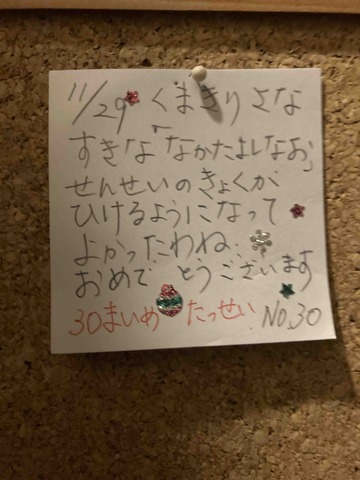 11/29 くまきりさな
すきな「なかたよしなお」
せんせいのきょくが
ひけるようになって
よかったわね.
おめでとうございます
30まいめ たっせい No.30